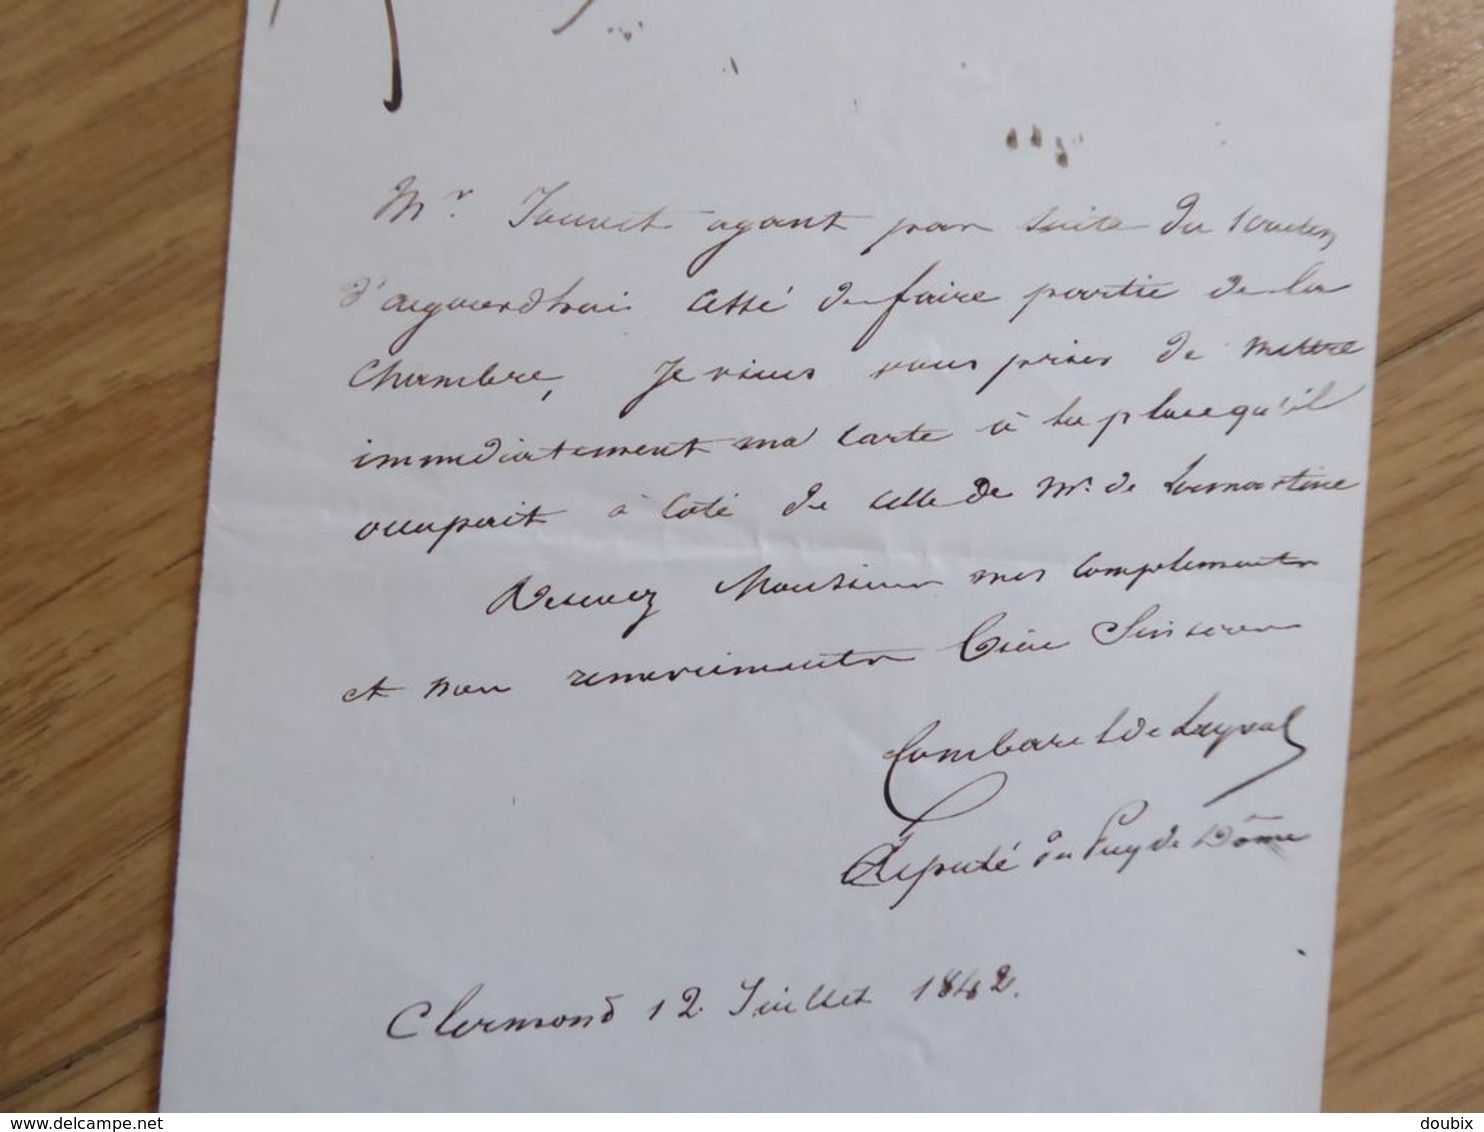 Mr. Jouvet ayant par suite du scrutin
d'aujourdhui cessé de faire partie de la
Chambre, Je viens vous prier de mettre
immediatement ma carte à la place qu'il
occupait à coté de celle de Mr. de Lamartine
Recevez Monsieur mes compliments
et mes remerciments bien Sinceres
Combarel de Leyval
Deputé du Puy de Dôme
Clermond 12 Juillet 1842.
delcampe.net
doubix